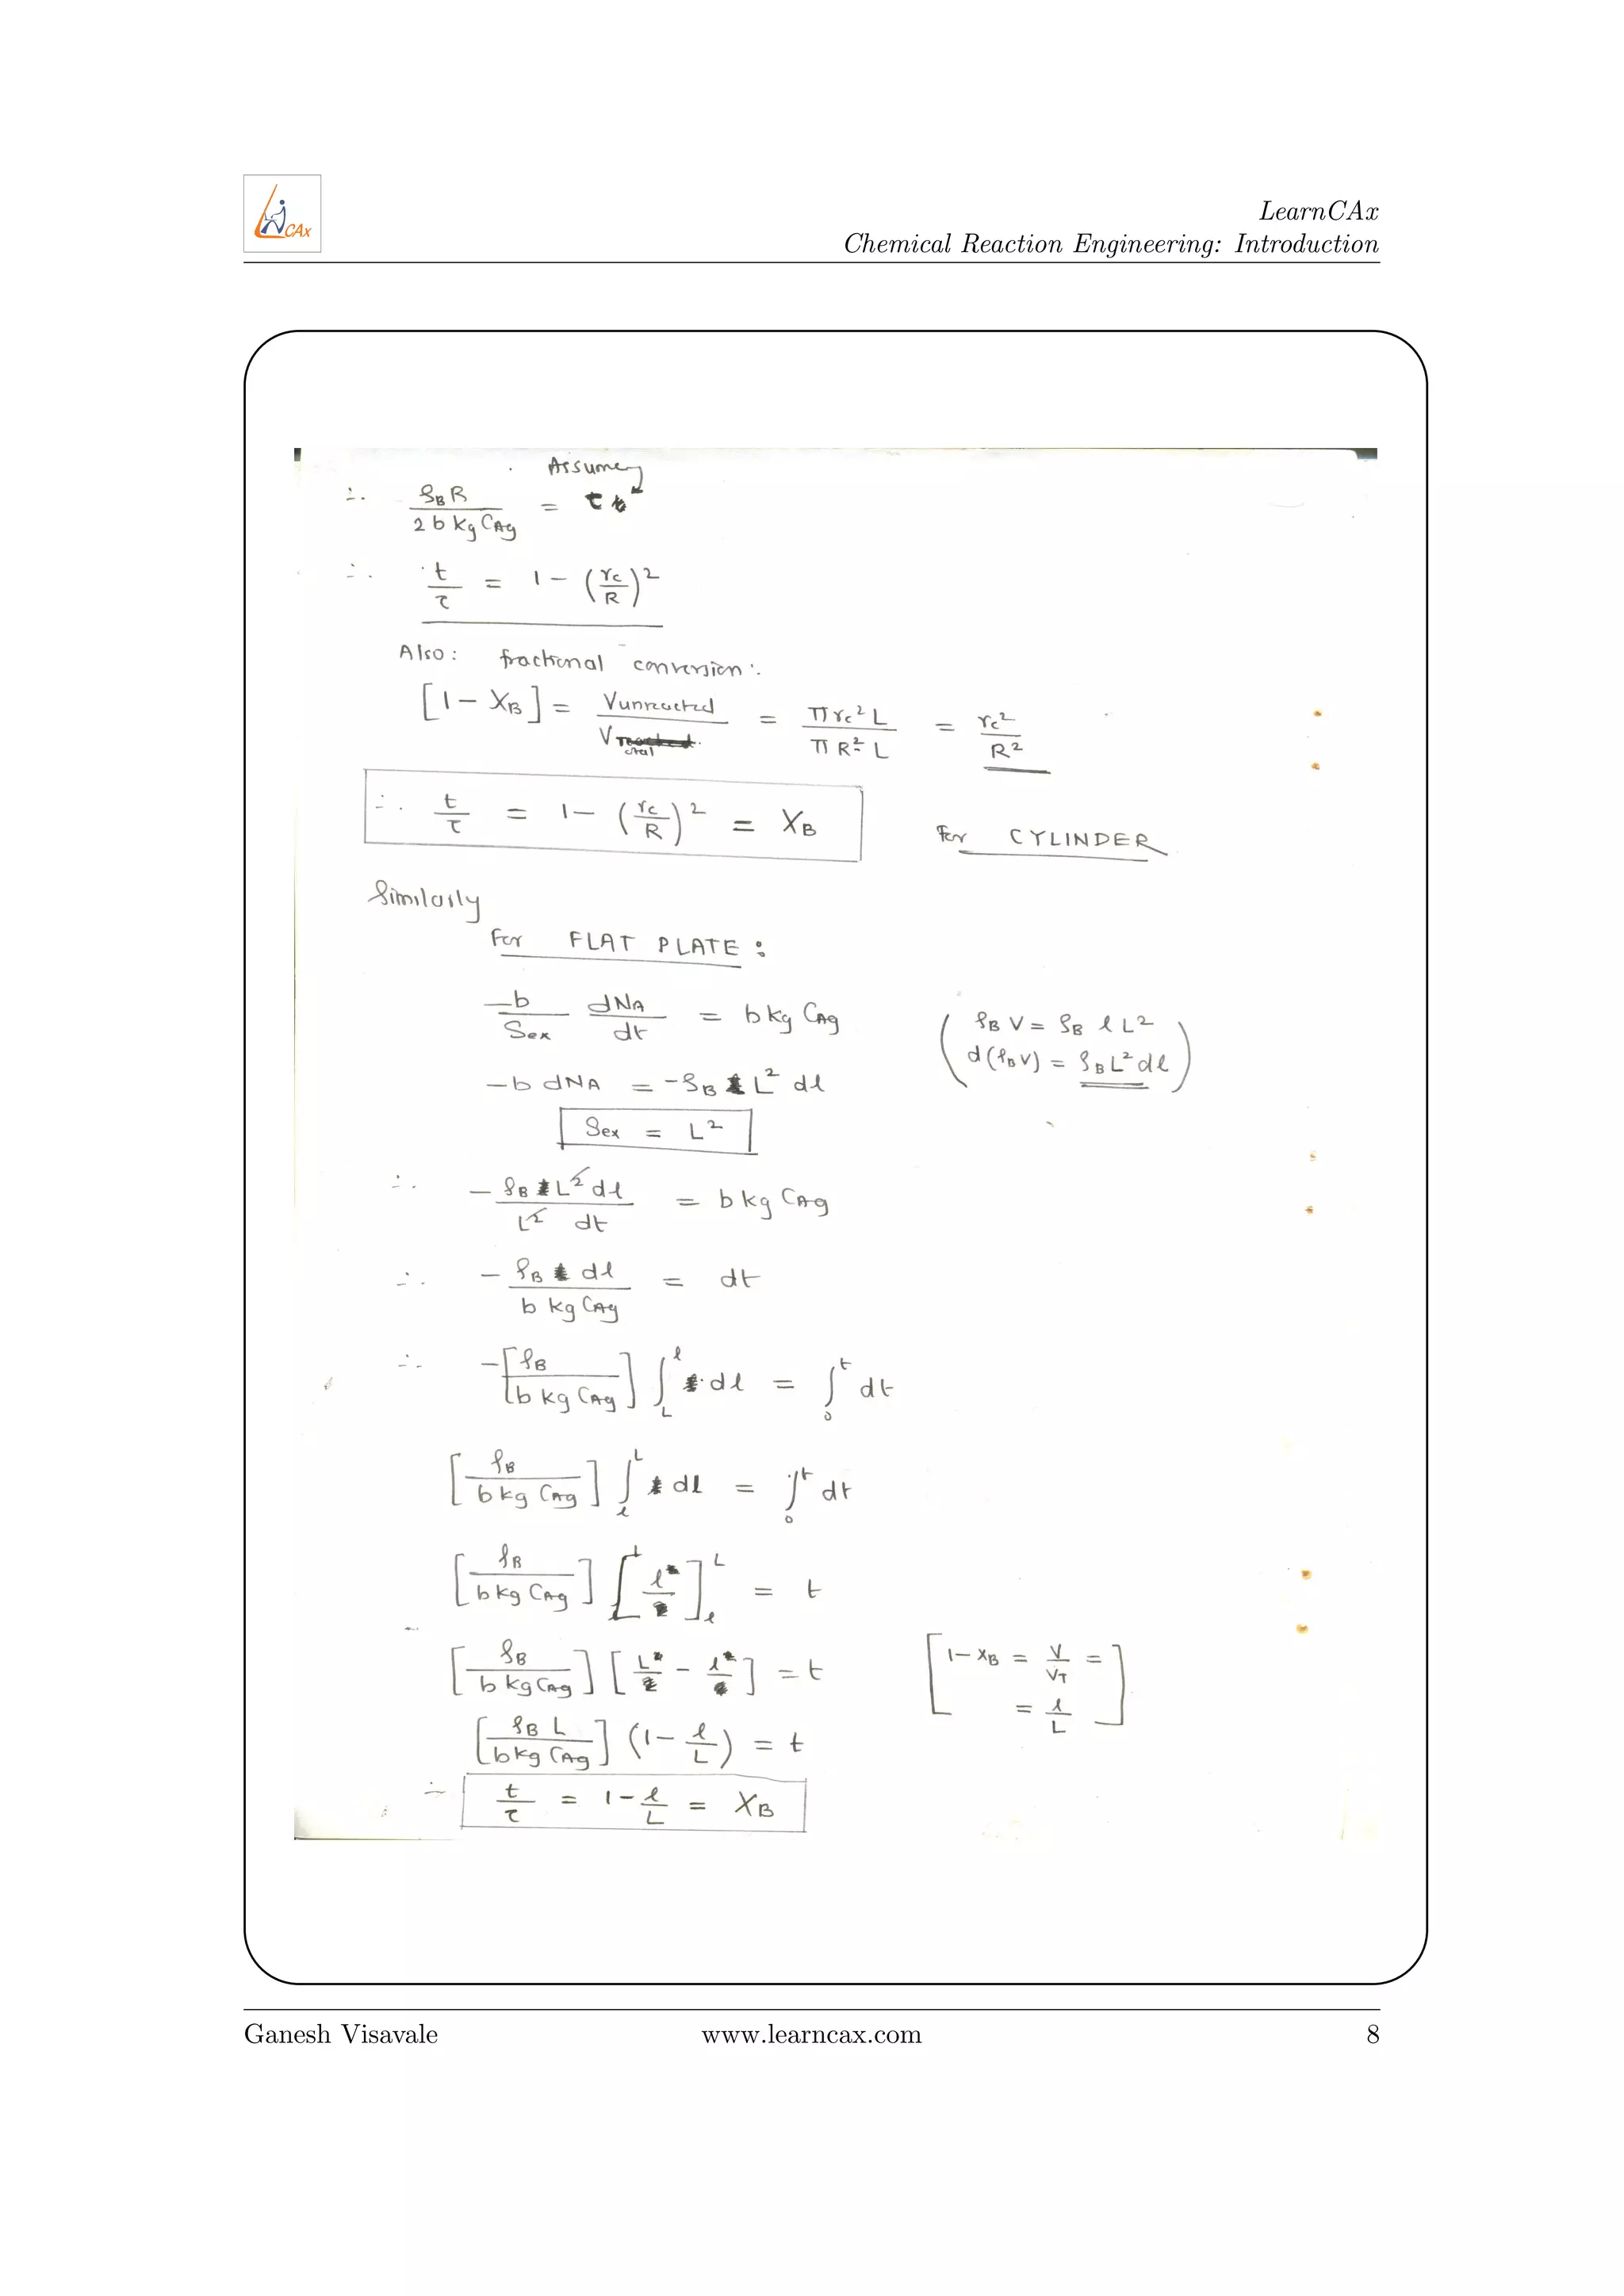 CAx
LearnCAx
Chemical Reaction Engineering: Introduction
Assume
∴ ρB R / 2 b kg CAg = τ
∴ t/τ = 1 - (rc/R)²
Also : fractional conversion :
[1 - XB] = Vunreacted / VTotal = π rc² L / π R² L = rc² / R²
∴ t/τ = 1 - (rc/R)² = XB For CYLINDER
Similarly
For FLAT PLATE :
-b/Sex dNA/dt = b kg CAg (ρB V = ρB l L²
d(ρB V) = ρB L² dl)
-b dNA = -ρB L² dl
Sex = L²
∴ - ρB L² dl / L² dt = b kg CAg
∴ - ρB dl / b kg CAg = dt
∴ -[ρB / b kg CAg] ∫_L^l dl = ∫_0^t dt
[ρB / b kg CAg] ∫_l^L dl = ∫_0^t dt
[ρB / b kg CAg] [l]_l^L = t
[ρB / b kg CAg] [L - l] = t [1 - XB = V/VT =
= l/L]
[ρB L / b kg CAg] (1 - l/L) = t
∴ t/τ = 1 - l/L = XB
Ganesh Visavale www.learncax.com 8